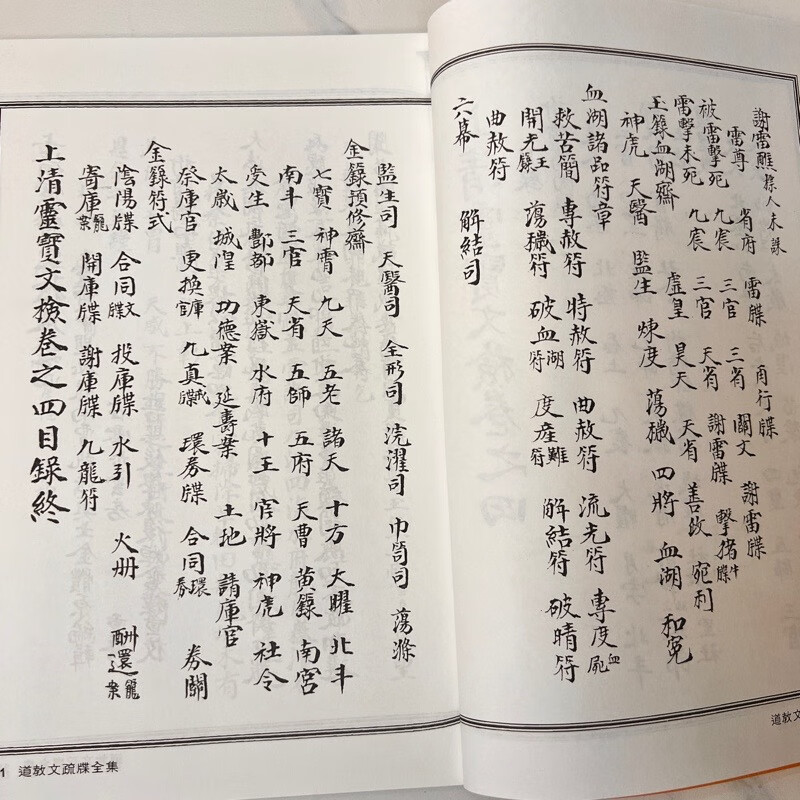 謝雷醮 祿人未誅
雷尊 省府 雷牒 甬行牒
被雷擊死 九宸 三官 三省 關文 謝雷牒
雷擊未死 九宸 三官 天省 謝雷牒 擊猪牛牒
玉籙血湖齋 虛皇 昊天 天省 善啟 宛利
神虎 天醫 監生 煉度 蕩穢 四將 血湖 和冤
血湖諸品符章
救苦簡 專赦符 特赦符 曲赦符 流光符 專度血屍
開光玉籙 蕩穢符 破血湖符 度產難符 解結符 破晴符
曲赦符
六幕 解結司
監生司 天醫司 全形司 浣濯司 巾笥司 蕩滌
金籙預修齋
七寶 神霄 九天 五老 諸天 十方 大曜 北斗
南斗 三官 天省 五師 五府 天曹 黃籙 南宮
受生 酆都 東嶽 水府 十王 官將 神虎 社令
太歲 城隍 功德案 延壽案 土地 請庫官
祭庫官 更換庫官 九真戒牒 環券牒 合同環券 券關
金籙符式
陰陽牒 合同文牒 投庫牒 水引 火册 酬還籠案
寄庫籠案 開庫牒 謝庫牒 九龍符
上清靈寶文檢卷之四目録終
1 道敎文疏牒全集
道敎文